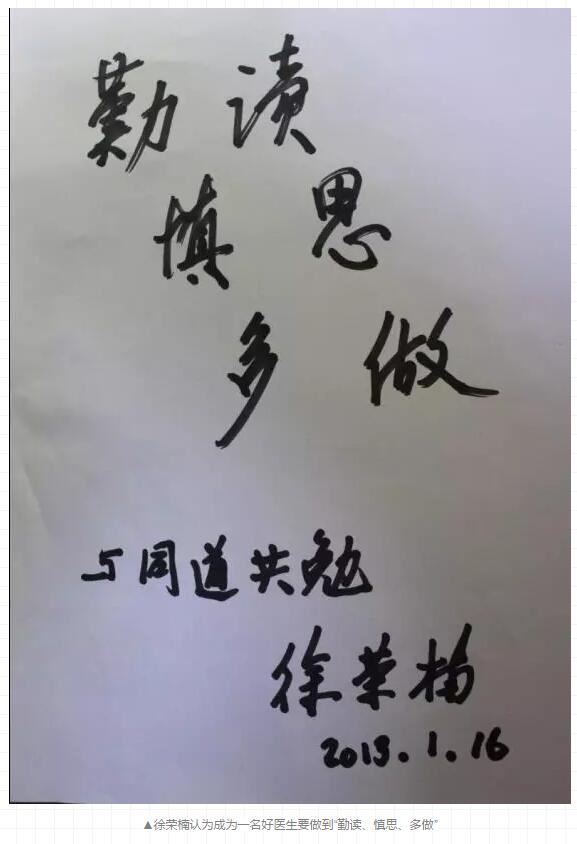 勤读
慎思
多做
与同道共勉
徐荣楠
2019.1.16
▲徐荣楠认为成为一名好医生要做到“勤读、慎思、多做”